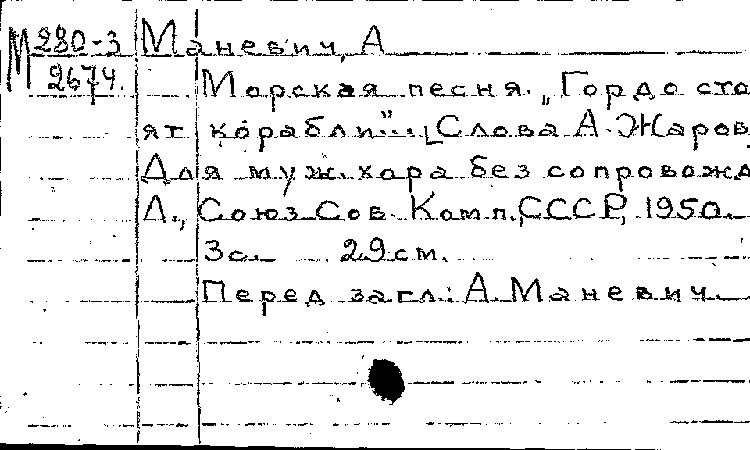 М 280-3 Маневич, А
2674.
Морская песня. „Гордо сто
ят корабли"... [Слова А. Жаров
Для муж. хора без сопровожд
Л., Союз Сов. Комп. СССР, 1950.
3с. 29см.
Перед загл.: А. Маневич.